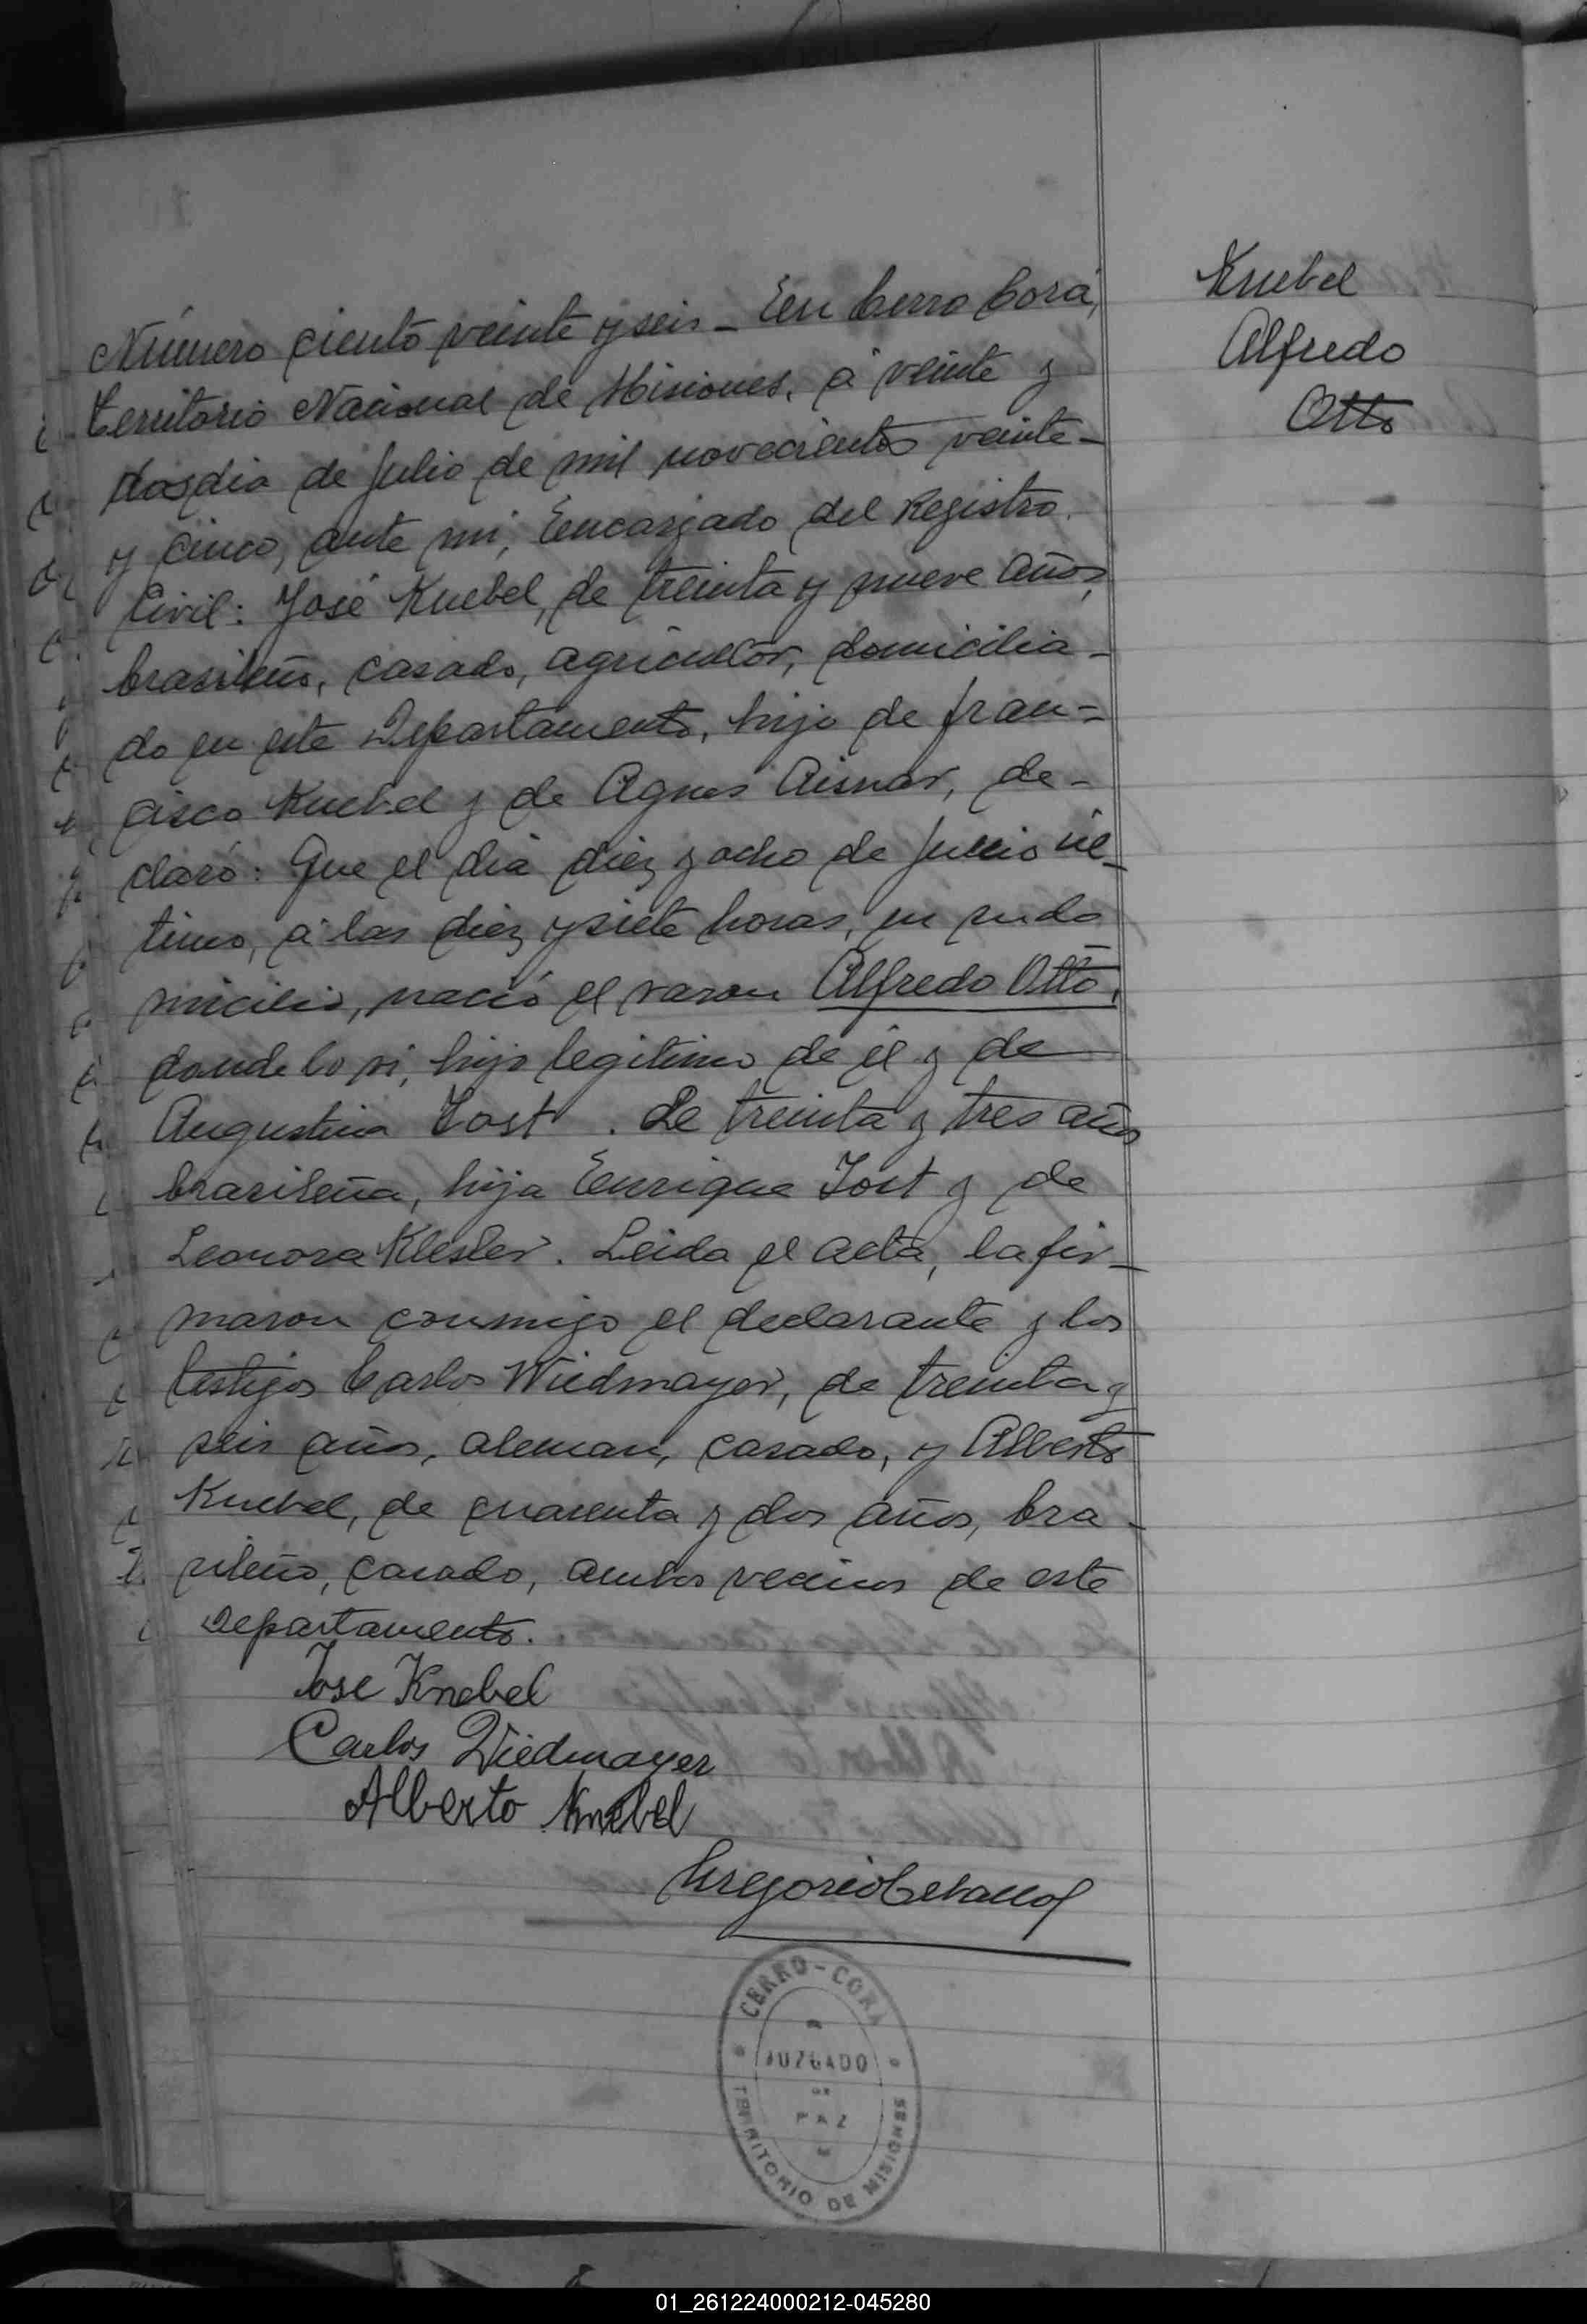 Número ciento veinte y seis - En Cerro Corá,
Territorio Nacional de Misiones, á veinte y
dos dia de Julio de mil novecientos veinte-
y cinco, ante mi, Encargado del Registro
Civil: José Knebel, de treinta y nueve años,
brasileño, casado, agricultor, domicilia-
do en este Departamento, hijo de Fran=
cisco Knebel y de Agnes, de-
claró: Que el dia diez y ocho de Junio úl-
timo, á las diez y siete horas, en su do
micilio, nació el varon Alfredo Otto,
donde lo vi, hijo legitimo de él y de
Augustina Jost. de treinta y tres años
brasileña, hija Enrique Jost y de
Leonora Klesler. Leida el acta, la fir-
maron conmigo el declarante y los
testigos Carlos Wiedmayer, de treinta y
seis años, aleman, casado, y Alberto
Knebel, de cuarenta y dos años, bra-
sileño, casado, ambos vecinos de este
Departamento.
Jose Knebel
Carlos Wiedmayer
Alberto Knebel
Gregorio Ceballos
Knebel
Alfredo
Otto
CERRO-CORÁ
JUZGADO
DE
PAZ
TERRITORIO DE MISIONES
01_261224000212-045280